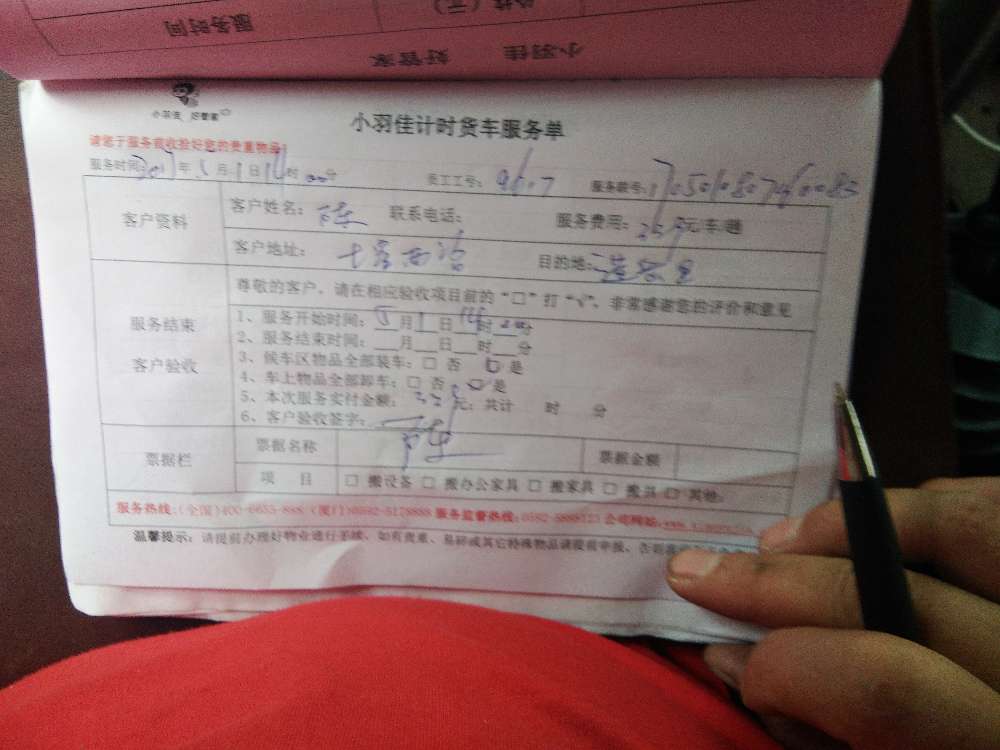 服务时间
小羽佳 好管家
小羽佳 好管家
小羽佳计时货车服务单
请您于服务前收捡好您的贵重物品!
服务时间:2017年5月1日14时00分 员工工号: 9607 服务账号:
客户资料 客户姓名: 陈 联系电话: 服务费用: 元/车/趟
客户地址: 目的地:
尊敬的客户,请在相应验收项目前的“□”打“√”,非常感谢您的评价和意见
服务结束 客户验收
1、服务开始时间: 5月1日14时00分
2、服务结束时间:___月___日___时___分
3、候车区物品全部装车: □ 否 □ 是
4、车上物品全部卸车: □ 否 □ 是
5、本次服务实付金额: 元; 共计 时 分
6、客户验收签字: 陈
票据栏 票据名称 票据金额
项 目 □ 搬设备 □ 搬办公家具 □ 搬家具 □ □ 其他:
服务热线:(全国)400-6655-888 (厦门)0592-5178888 服务监督热线:0592-5888123 公司网站:
温馨提示: 请提前办理好物业进行手续,如有贵重、易碎或其它特殊物品请提前申报,